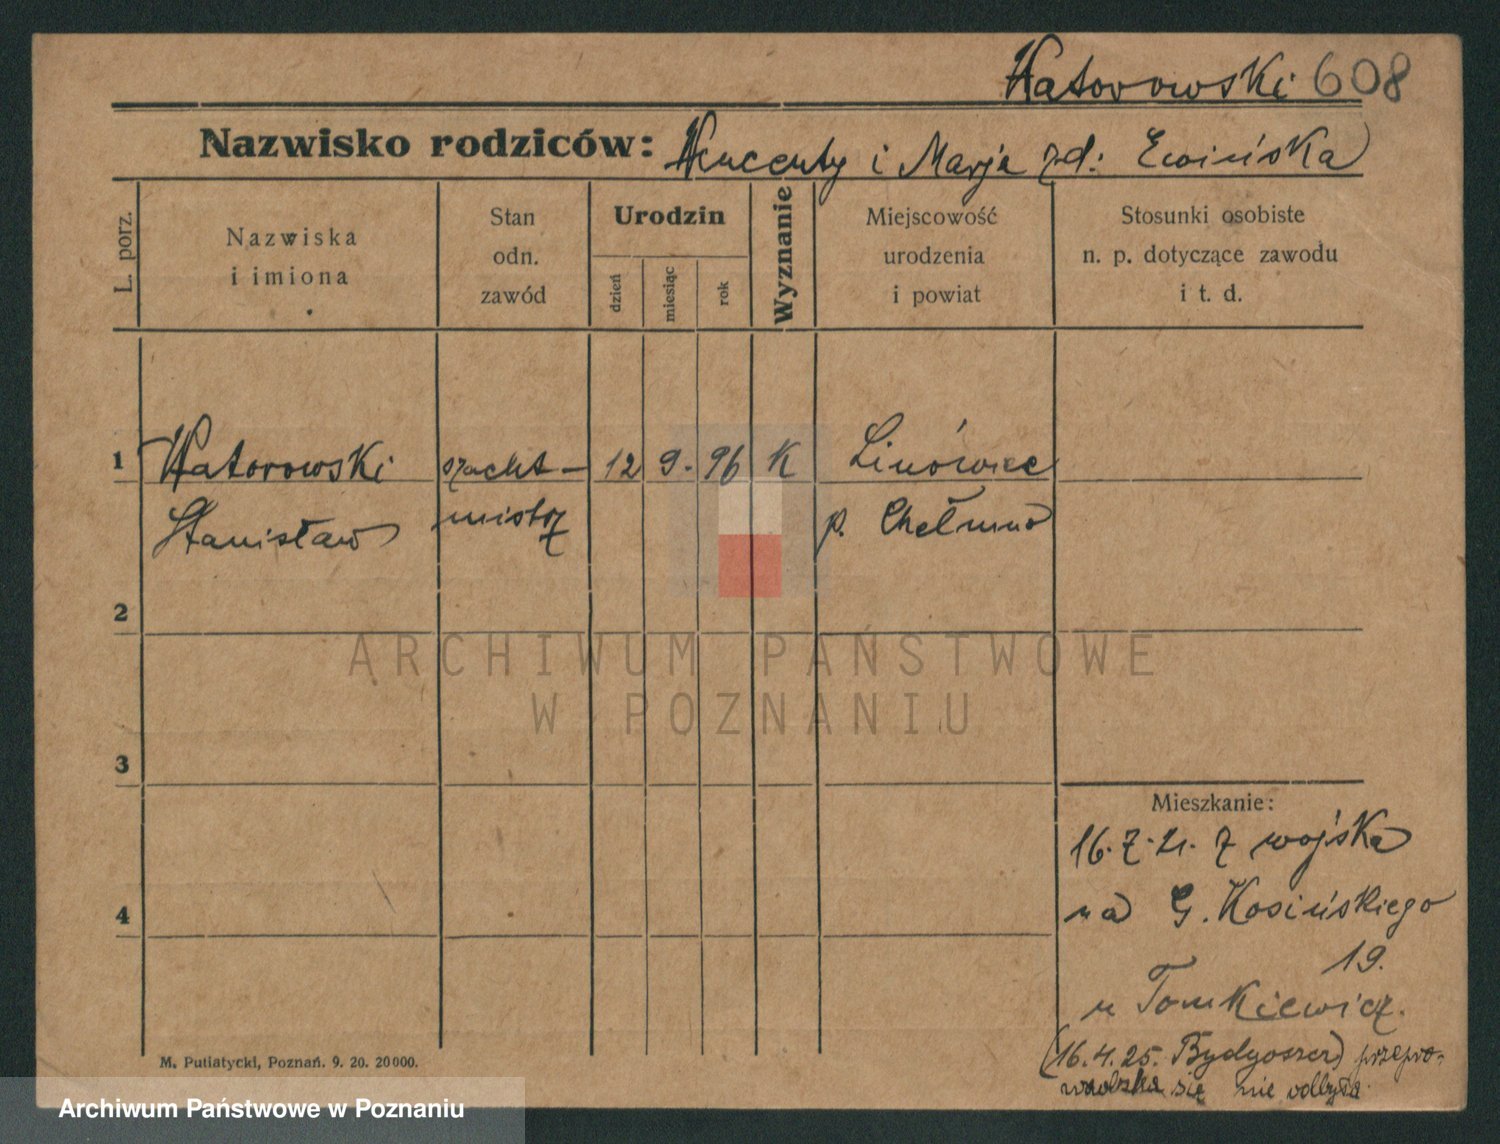 Watorowski 608
Nazwisko rodziców: Wincenty i Marja zd: Ewińska
L. porz.
Nazwiska
i imiona
Stan
odn.
zawód
Urodzin
dzień
miesiąc
rok
Wyznanie
Miejscowość
urodzenia
i powiat
Stosunki osobiste
n. p. dotyczące zawodu
i t. d.
1 Watorowski szacht- 12 9. 96 K Linówiec
Stanisław mistrz p. Chełmno
2
3
4
Mieszkanie:
16.7.21. z wojska
na G. Kosińskiego
19.
u Tomkiewicz.
(16.4.25. Bydgoszcz) przepro-
wadzka się nie odbyła.
M. Putiatycki, Poznań. 9. 20. 20000.
ARCHIWUM PAŃSTWOWE
W POZNANIU
Archiwum Państwowe w Poznaniu